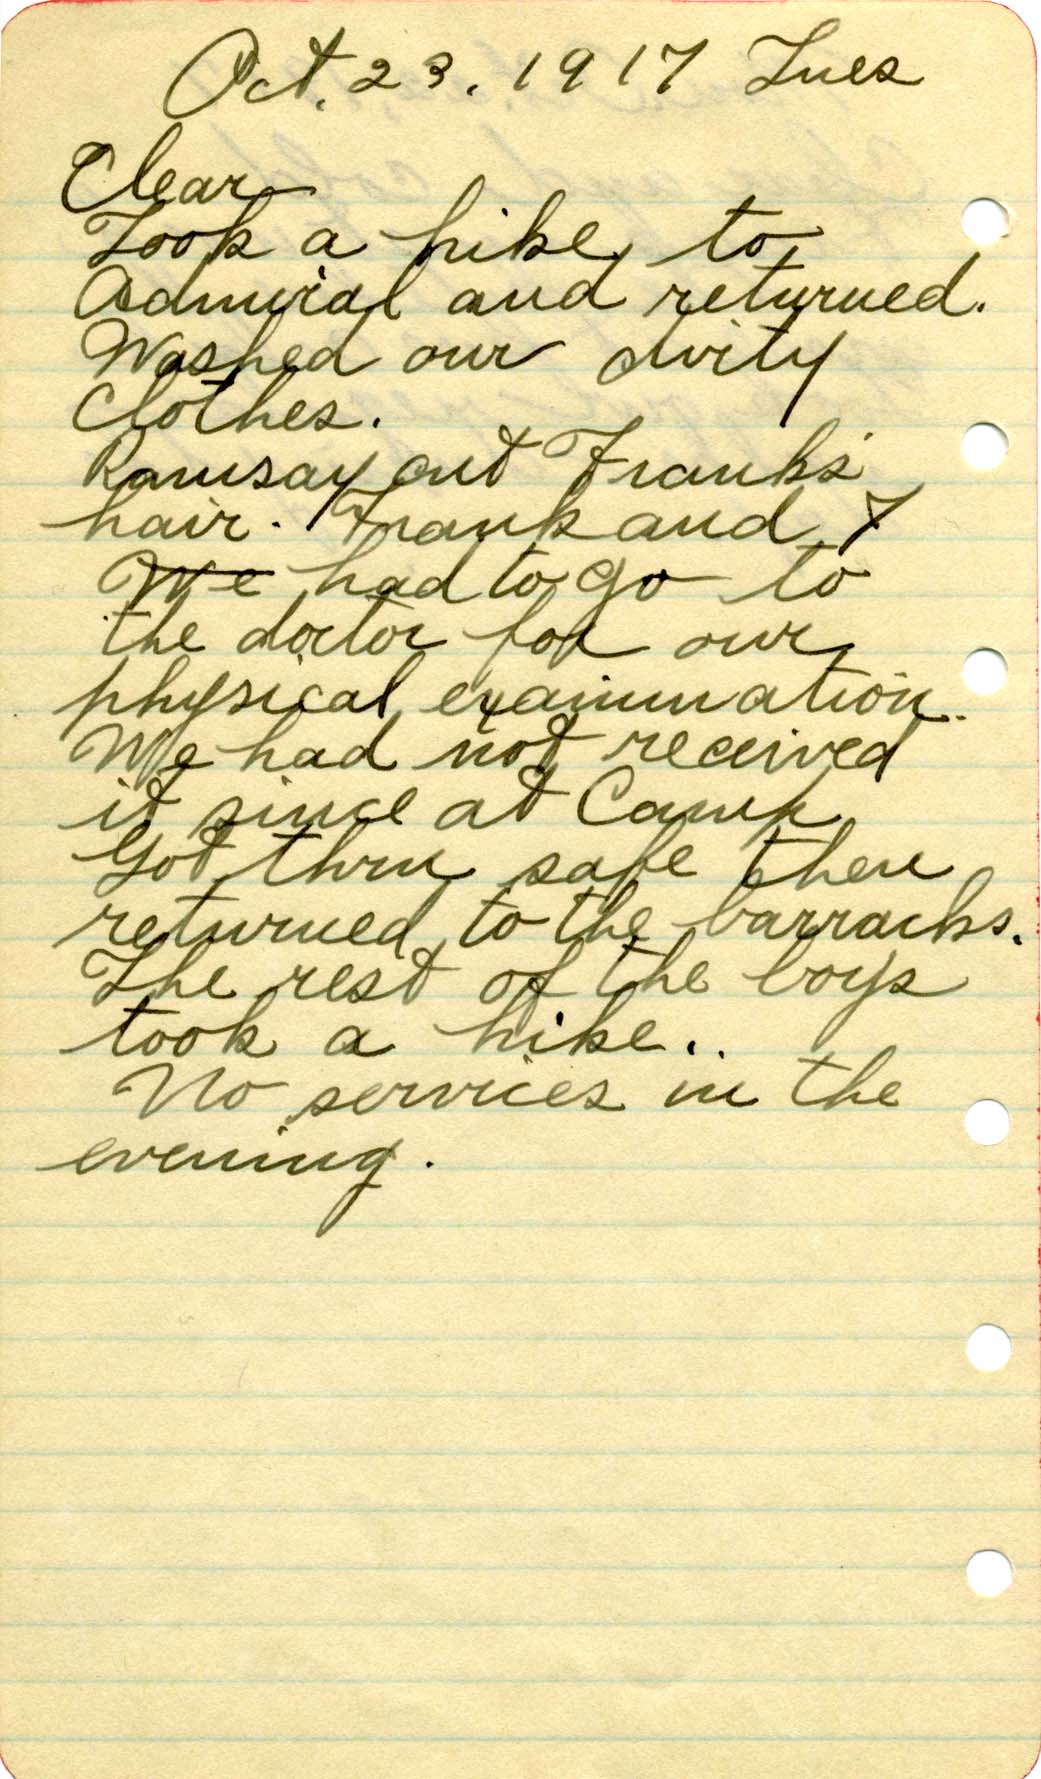 Oct. 23. 1917 Tues
Clear
Took a hike to
Admiral and returned.
Washed our dirty
clothes.
Ramsay cut Frank's
hair. Frank and I
We had to go to
the doctor for our
physical examination.
We had not received
it since at Camp
Got thru safe then
returned to the barracks.
The rest of the boys
took a hike..
No services in the
evening.